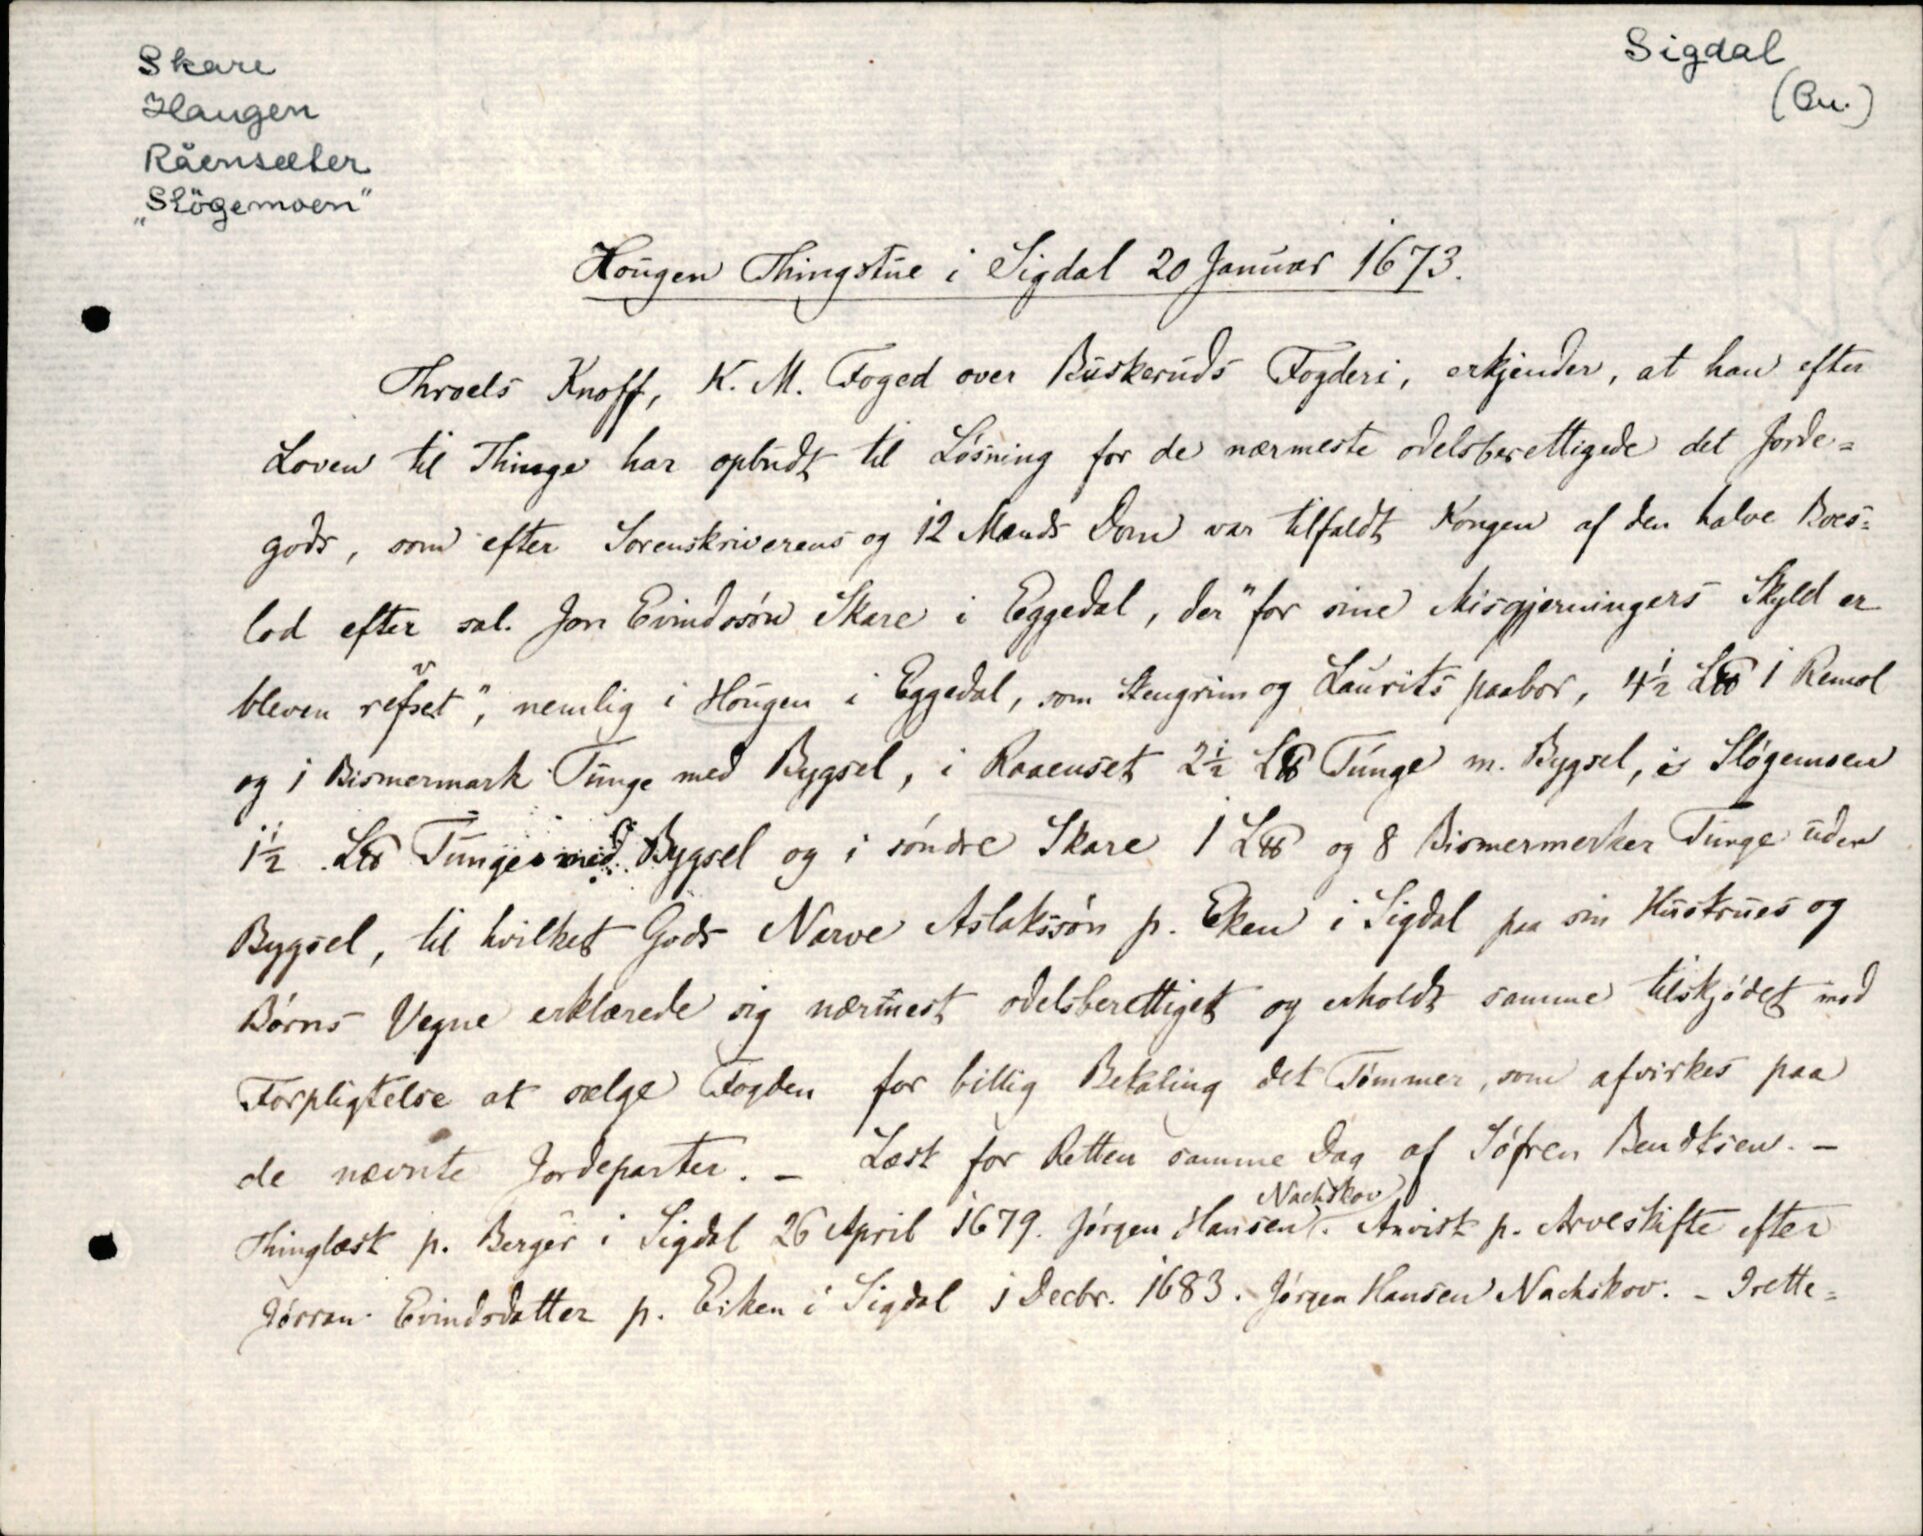 Skare
Haugen
Råensæter
"Slögemoen"
Sigdal
(Bu.)
Hougen Thingstue i Sigdal 20 Januar 1673.
Throels Knoff, K. M. Foged over Buskeruds Fogderi, erkjender, at han efter
Loven til Thinge har opbudt til Løsning for de nærmeste odelsberettigede det Jorde=
gods, som efter Sorenskriverens og 12 Mænds Dom var tilfaldt Kongen af den halve Boes=
lod efter sal. Jon Evindssøn Skare i Eggedal, der "for sine Misgjerningers Skyld er
bleven refset", nemlig i Hougen i Eggedal, som Stengrim og Laurits paabor, 4½ L℔ 1 Remol
og 1 Bismermark Tunge med Bygsel, i Raaenset 2½ L℔ Tunge m. Bygsel, i Sløgemoen
1½ L℔ Tunge med Bygsel og i søndre Skare 1 L℔ og 8 Bismermerker Tunge uden
Bygsel, til hvilket Gods Narve Aslakssøn p. Eken i Sigdal paa sin Hustrues og
Børns Vegne erklærede sig nærmest odelsberettiget og erholdt samme tilskjødet mod
Forpligtelse at sælge Fogden for billig Betaling det Tømmer, som afvirkes paa
de nævnte Jordeparter. – Læst for Retten samme Dag af Søfren Bendtsen. –
Thinglæst p. Berger i Sigdal 26 April 1679. Jørgen Hansen Nachskov. Anvist p. Arveskifte efter
Jørran Evindsdatter p. Eiken i Sigdal 1 Decbr. 1683. Jørgen Hansen Nachskov. – Irette=